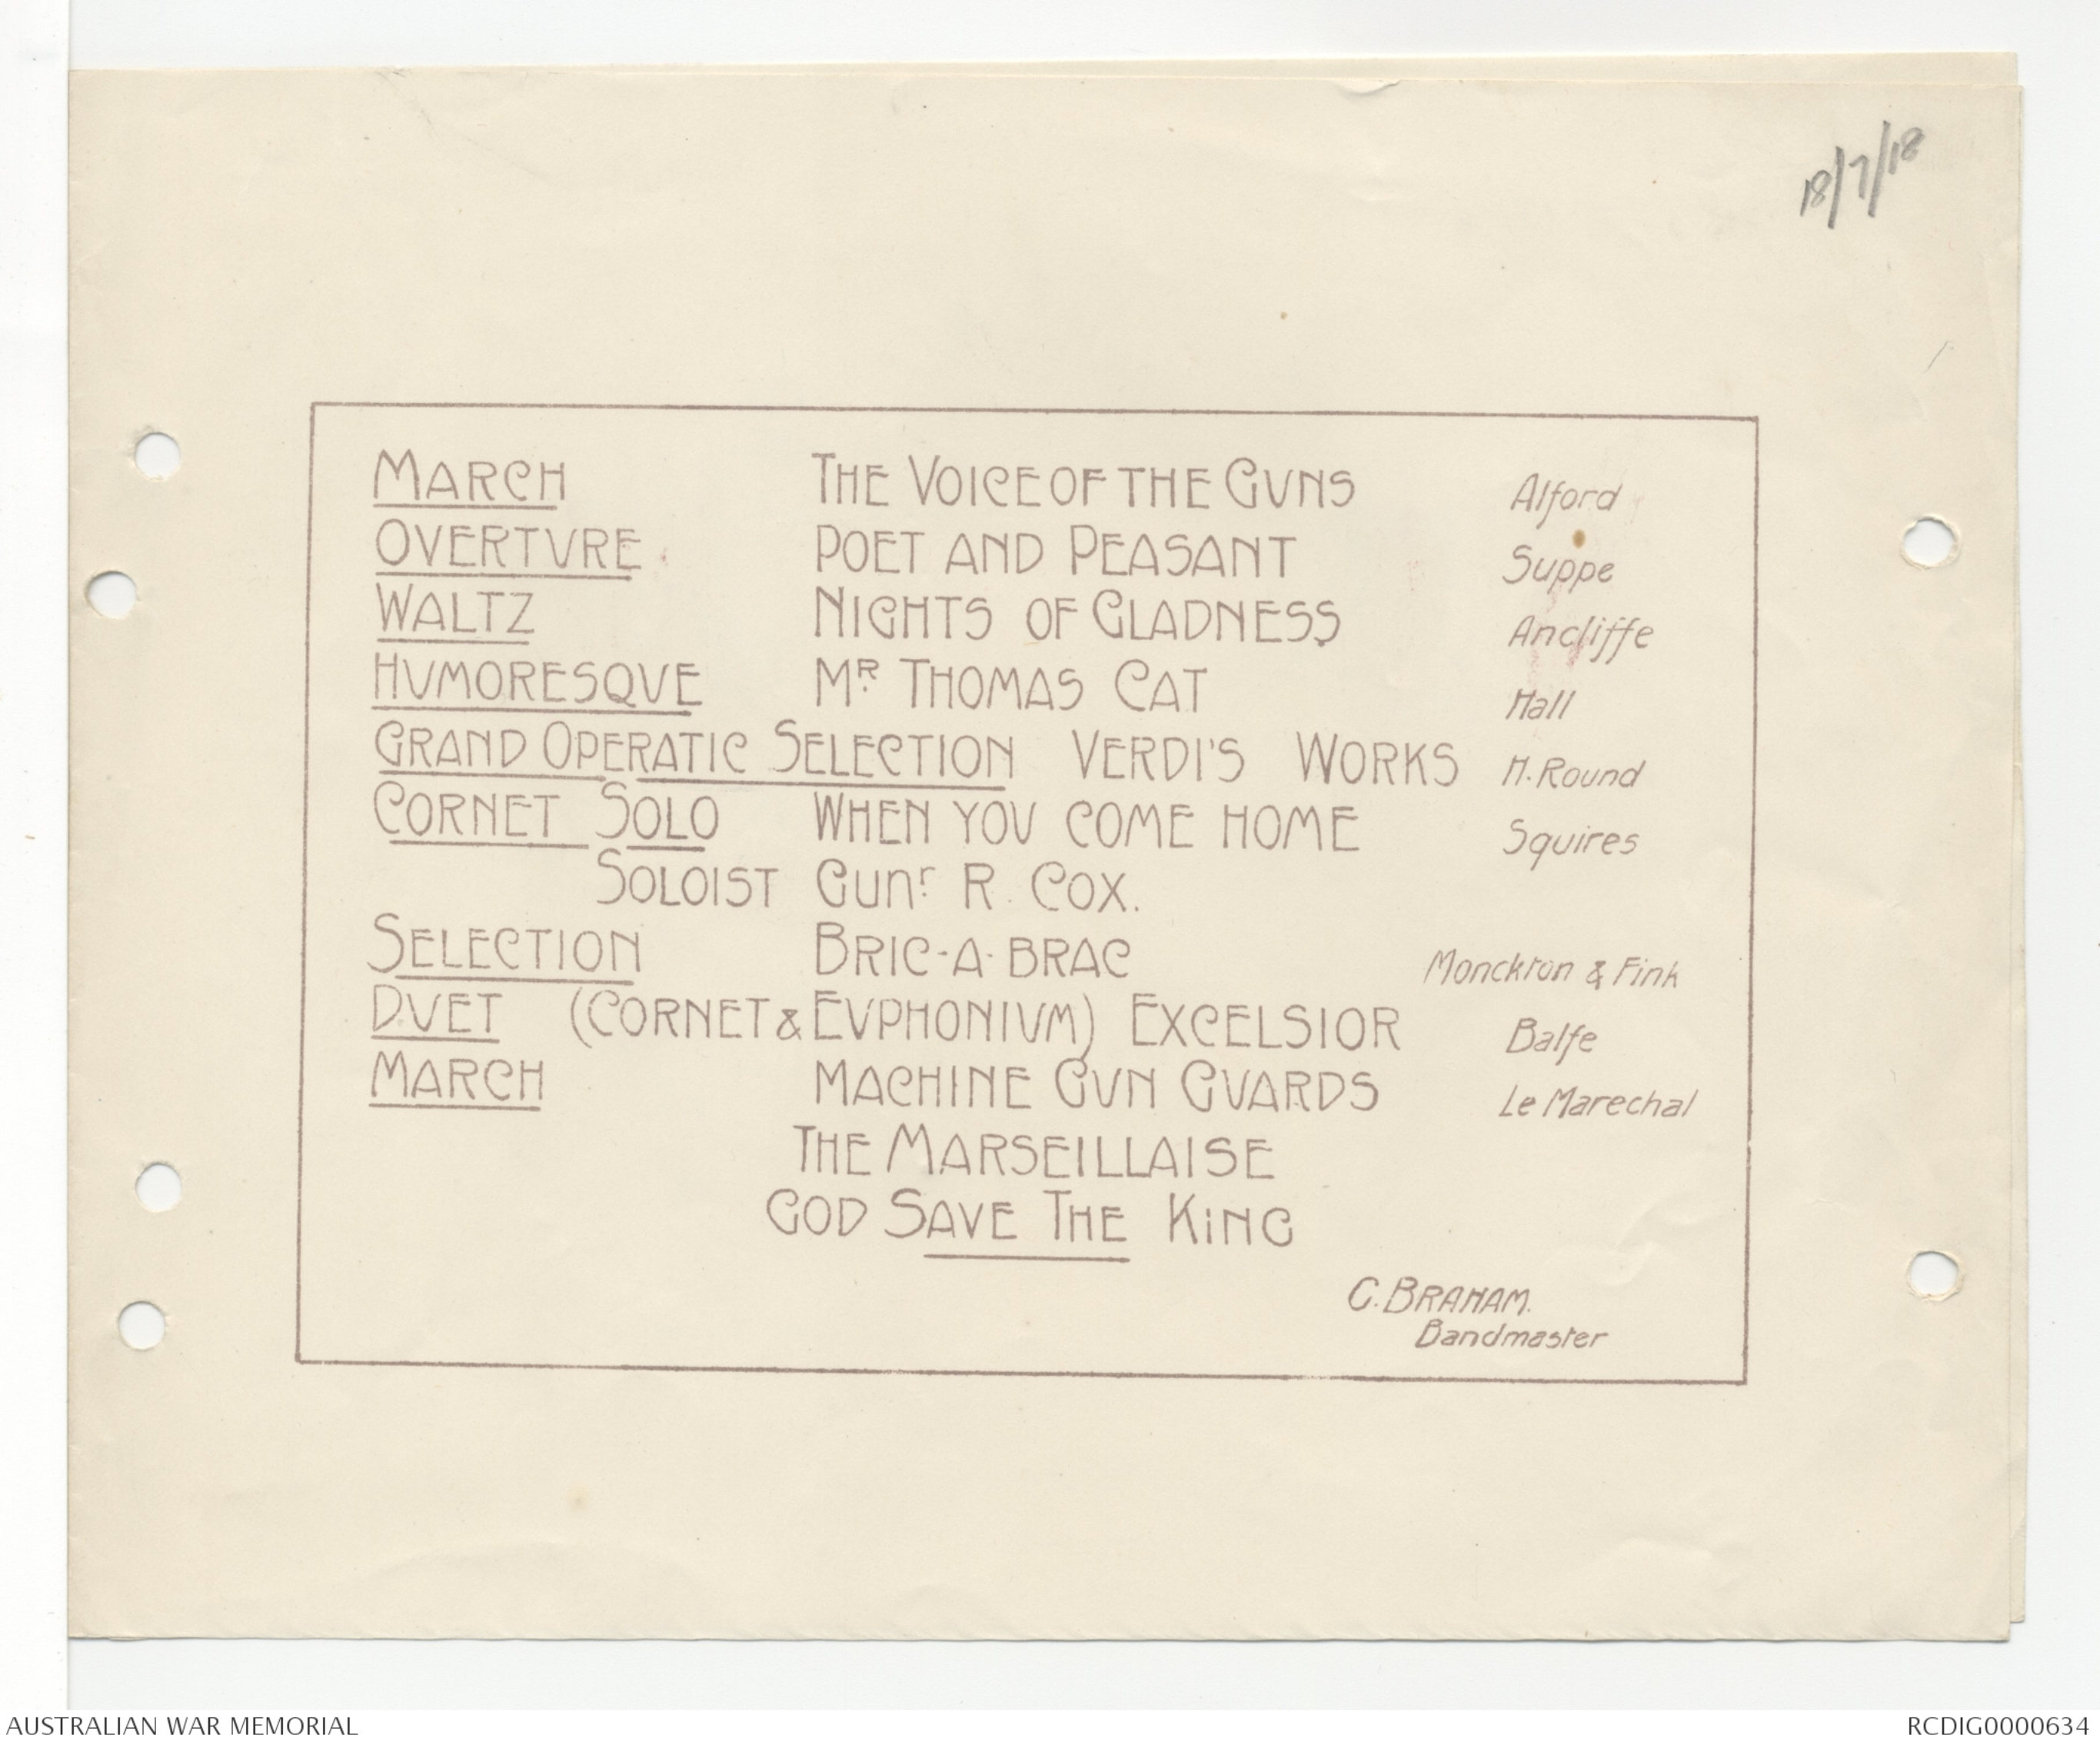 18/7/18
MARCH THE VOICE OF THE GVNS Alford
OVERTVRE POET AND PEASANT Suppe
WALTZ NIGHTS OF GLADNESS Ancliffe
HVMORESQVE MR. THOMAS CAT Hall
GRAND OPERATIC SELECTION VERDI'S WORKS H. Round
CORNET SOLO WHEN YOV COME HOME Squires
SOLOIST Gunr. R. COX.
SELECTION BRIC-A-BRAC Monckton & Fink
DVET (CORNET & EVPHONIVM) EXCELSIOR Balfe
MARCH MACHINE GVN GVARDS Le Marechal
THE MARSEILLAISE
GOD SAVE THE KiNG
C. BRAHAM.
Bandmaster
AUSTRALIAN WAR MEMORIAL RCDIG0000634